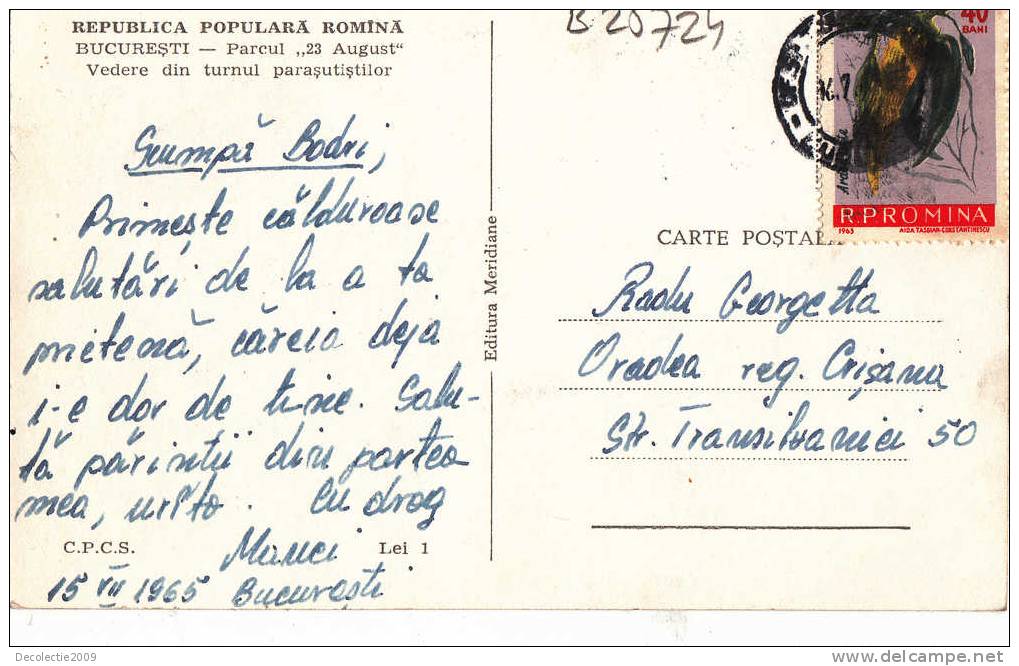 REPUBLICA POPULARĂ ROMÎNĂ
BUCUREȘTI — Parcul „23 August“
Vedere din turnul parașutiștilor
B 20724
40
BANI
R.P.ROMINA
1963 AIDA TASGIAN-CONSTANTINESCU
Scumpă Bodri,
Primește călduroase
salutări de la a ta
prietenă, căreia deja
i-e dor de tine. Salu-
tă părinții din partea
mea, urîto. Cu drag
Manci
15 VII 1965 București
C.P.C.S. Lei 1
Editura Meridiane
CARTE POȘTALĂ
Radu Georgetta
Oradea reg. Crișana
Str. Transilvaniei 50
Decolectie2009
www.delcampe.net